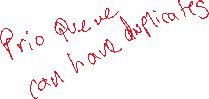 Prio Queue
can have duplicates